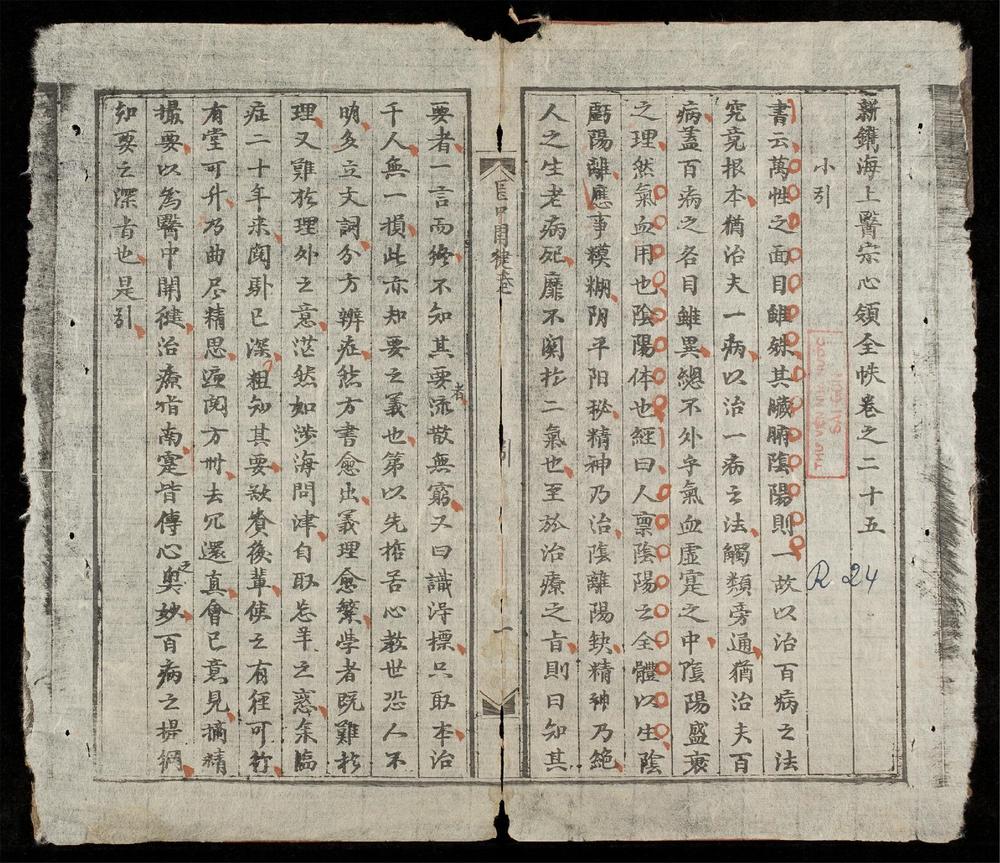 新鐫海上醫宗心領全帙卷之二十五
小引
書云萬性之面目雖殊其臟腑陰陽則一故以治百病之法
究竟根本猶治夫一病以治一病之法觸類旁通猶治夫百
病蓋百病之名目雖異總不外乎氣血虛寔之中陰陽盛衰
之理然氣血用也陰陽体也經曰人禀陰陽之全體以生陰
陽離應事糢糊阴平阳秘精神乃治陰離陽缺精神乃絕
人之生老病死靡不関於二氣也至於治療之旨則曰知其
要者一言而終不知其要者流散無窮又曰識淂標只取本治
千人無一損此亦知要之義也第以先哲苦心教世恐人不
明多立文詞分方辨症然方書愈出義理愈繁學者既難於
理又難於理外之意茫然如涉海問津自取忘羊之惑余臨
症二十年来閱歷已深粗知其要欲賚後輩使之有徑可行
有堂可升乃曲尽精思遍閱方卌去冗還真會已意見摘精
撮要以為醫中開䅥治療指南寔皆傳心之奧妙百病之提綱
知要之深者也是引
引
一
R 24